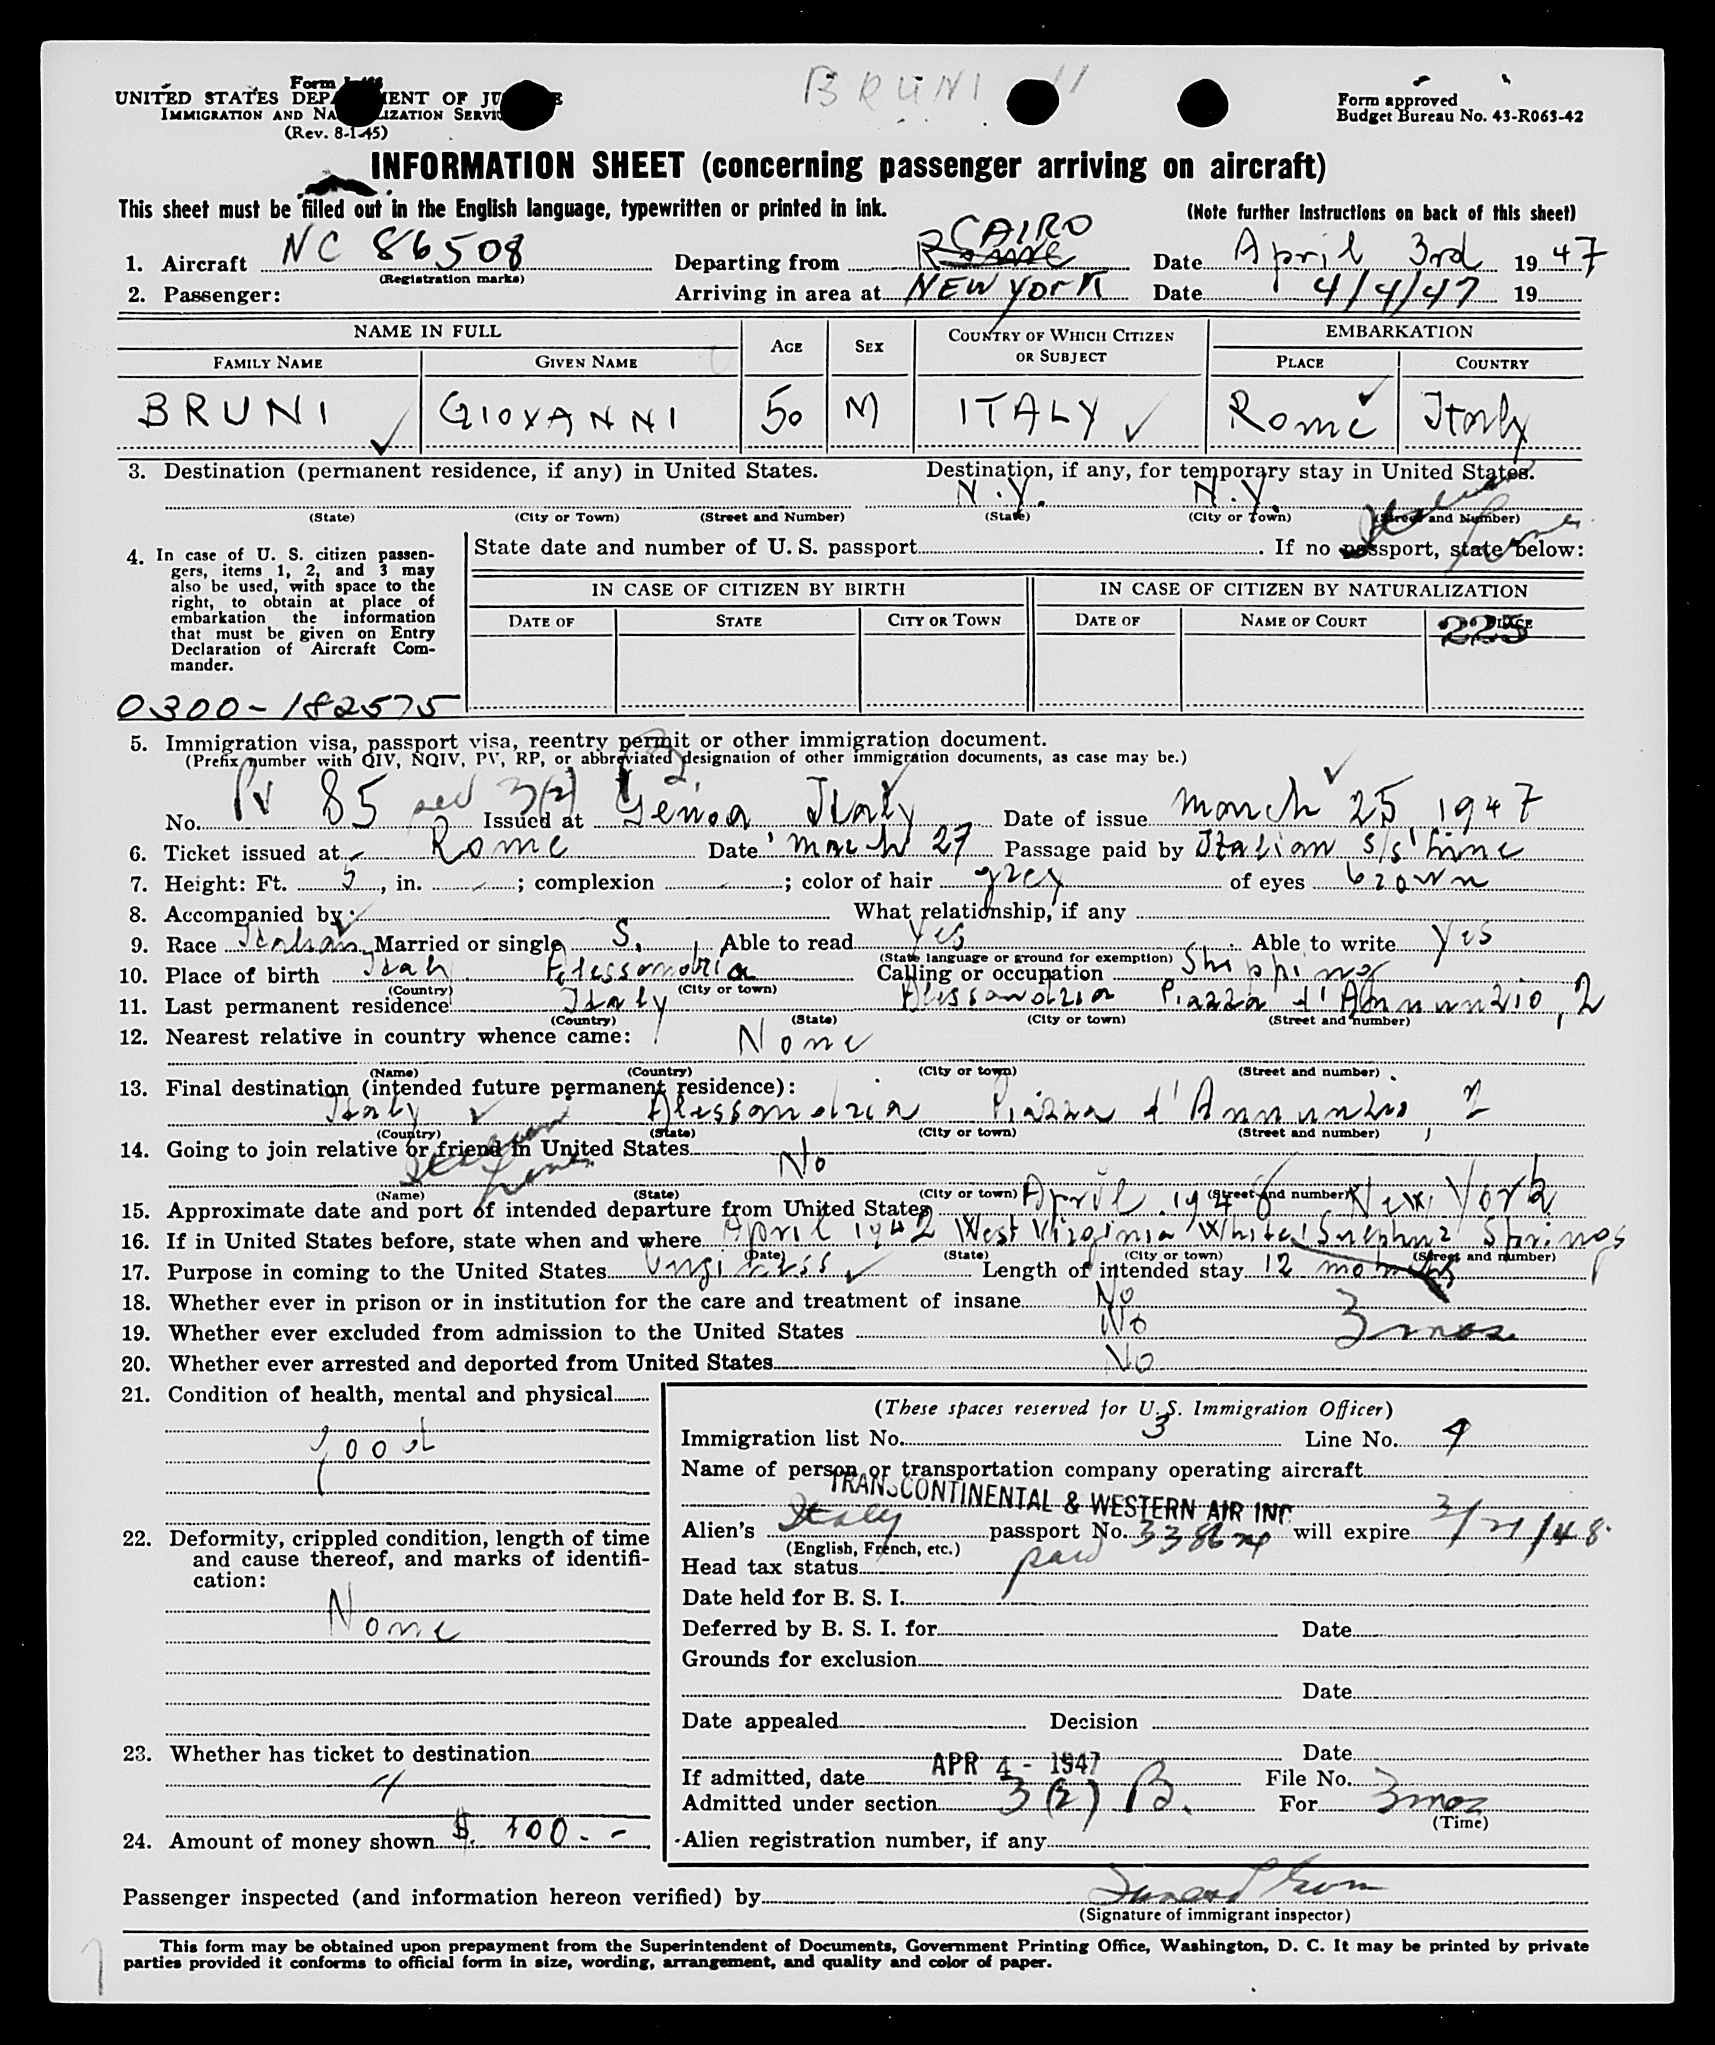 BRUNI 11
Form
UNITED STATES DEPARTMENT OF JUSTICE
IMMIGRATION AND NATURALIZATION SERVICE
(Rev. 8-1-45)
Form approved
Budget Bureau No. 43-R063-42
INFORMATION SHEET (concerning passenger arriving on aircraft)
This sheet must be filled out in the English language, typewritten or printed in ink.
(Note further instructions on back of this sheet)
1. Aircraft NC 86508 Departing from Rome CAIRO Date April 3rd 1947
(Registration marks)
2. Passenger: Arriving in area at NEW YORK Date 4/4/47 19
NAME IN FULL AGE SEX COUNTRY OF WHICH CITIZEN OR SUBJECT EMBARKATION
FAMILY NAME GIVEN NAME PLACE COUNTRY
BRUNI GIOVANNI 50 M ITALY Rome Italy
3. Destination (permanent residence, if any) in United States. Destination, if any, for temporary stay in United States.
N.Y. N.Y.
(State) (City or Town) (Street and Number) (State) (City or Town) (Street and Number)
4. In case of U. S. citizen passengers, items 1, 2, and 3 may also be used, with space to the right, to obtain at place of embarkation the information that must be given on Entry Declaration of Aircraft Commander.
State date and number of U. S. passport. If no passport, state below:
IN CASE OF CITIZEN BY BIRTH IN CASE OF CITIZEN BY NATURALIZATION
DATE OF STATE CITY OR TOWN DATE OF NAME OF COURT PLACE
225
0300-182575
5. Immigration visa, passport visa, reentry permit or other immigration document.
(Prefix number with QIV, NQIV, PV, RP, or abbreviated designation of other immigration documents, as case may be.)
No. PV 85 sec 3(2) B Issued at Genoa Italy Date of issue March 25 1947
6. Ticket issued at Rome Date March 27 Passage paid by Italian s/s line
7. Height: Ft. 5, in. ; complexion ; color of hair grey of eyes brown
8. Accompanied by What relationship, if any
9. Race Italian Married or single S. Able to read Yes Able to write Yes
(State language or ground for exemption)
10. Place of birth Italy Alessandria Calling or occupation Shipping
(Country) (City or town)
11. Last permanent residence Italy Alessandria Piazza d'Annunzio, 2
(Country) (State) (City or town) (Street and number)
12. Nearest relative in country whence came: None
(Name) (Country) (City or town) (Street and number)
13. Final destination (intended future permanent residence):
Italy Alessandria Piazza d'Annunzio, 2
(Country) (State) (City or town) (Street and number)
14. Going to join relative or friend in United States. No
(Name) (State) (City or town) (Street and number)
15. Approximate date and port of intended departure from United States April 1948 New York
16. If in United States before, state when and where April 1942 West Virginia White Sulphur Springs
(Date) (State) (City or town) (Street and number)
17. Purpose in coming to the United States Length of intended stay 12 months
18. Whether ever in prison or in institution for the care and treatment of insane No
3 mos.
19. Whether ever excluded from admission to the United States No
20. Whether ever arrested and deported from United States No
21. Condition of health, mental and physical
good
22. Deformity, crippled condition, length of time and cause thereof, and marks of identification:
None
23. Whether has ticket to destination
24. Amount of money shown $. 100.-
(These spaces reserved for U. S. Immigration Officer)
Immigration list No. 3 Line No. 9
Name of person or transportation company operating aircraft
TRANSCONTINENTAL & WESTERN AIR INC
Alien's Italy passport No. will expire 3/21/48
(English, French, etc.)
Head tax status paid
Date held for B. S. I.
Deferred by B. S. I. for Date
Grounds for exclusion
Date
Date appealed Decision
Date
If admitted, date APR 4 - 1947 File No.
Admitted under section 3(2) B. For 3 mos
(Time)
Alien registration number, if any
Passenger inspected (and information hereon verified) by
(Signature of immigrant inspector)
This form may be obtained upon prepayment from the Superintendent of Documents, Government Printing Office, Washington, D. C. It may be printed by private
parties provided it conforms to official form in size, wording, arrangement, and quality and color of paper.